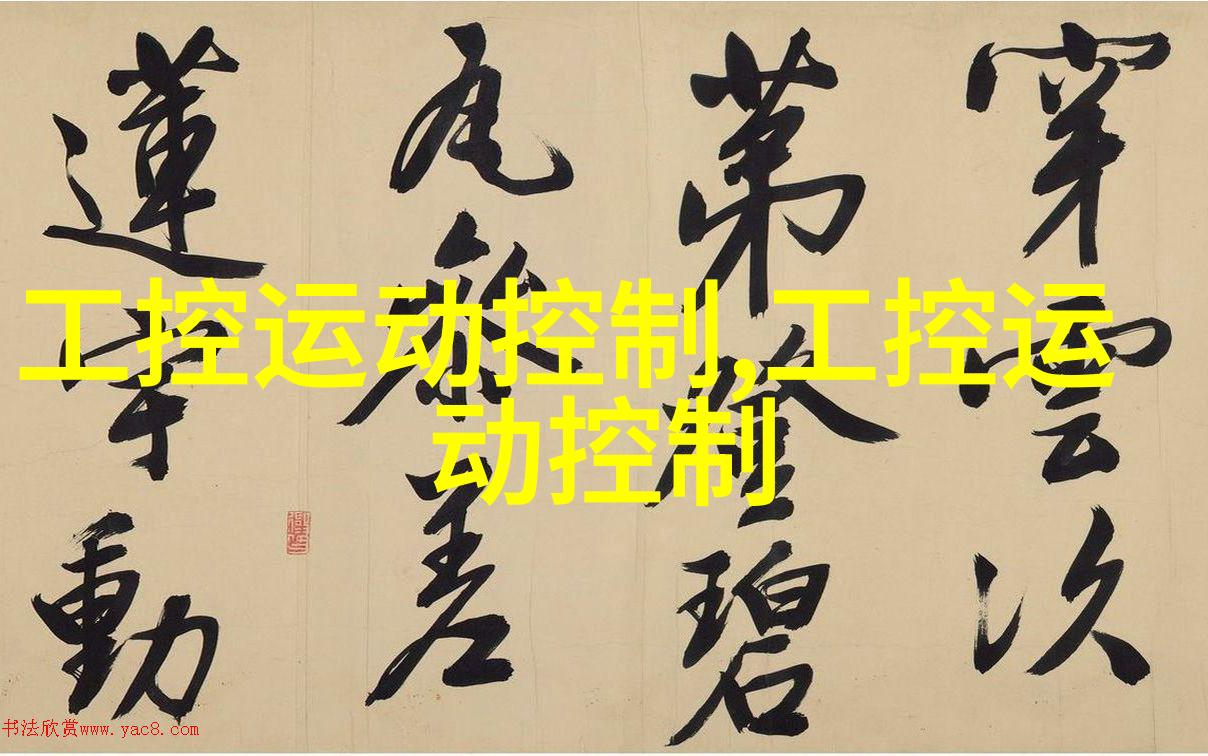 穿雲次
第碧
瓦參差
蓮宇動
工控运动控制,工控运
动控制
书法欣赏www.yac8.com